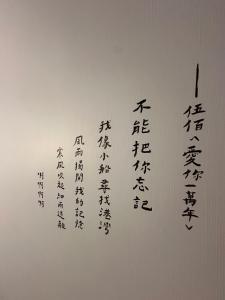 啊啊啊啊
寒風吹起 細雨迷離
風雨揭開我的記憶
我像小船尋找港灣
不能把你忘記
——伍佰〈愛你一萬年〉